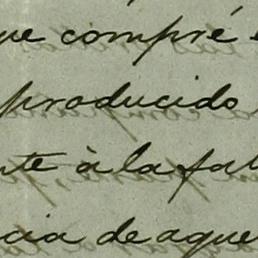 que compré
producido
te à la fal
cia de aque